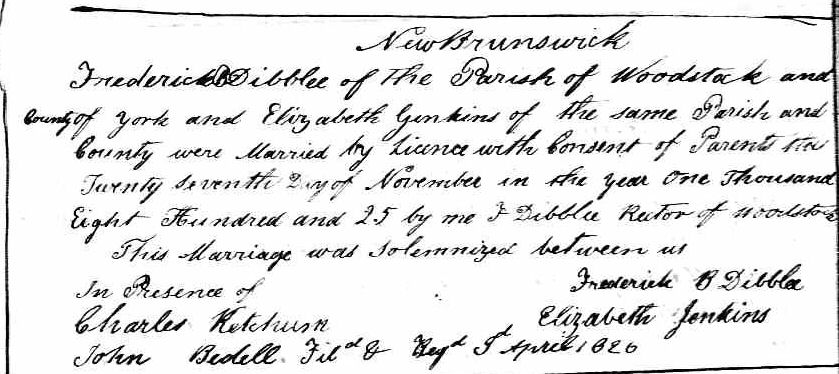 New Brunswick
Frederick B Dibblee of the Parish of Woodstock and
County of York and Elizabeth Genkins of the same Parish and
County were Married by Licence with Consent of Parents this
Twenty Seventh Day of November in the year One Thousand
Eight Hundred and 25 by me F Dibblee Rector of Woodstock
This Marriage was Solemnized between us
In Presence of
Frederick B Dibblee
Charles Ketchum
Elizabeth Jenkins
John Bedell Fild & Regd April 1826